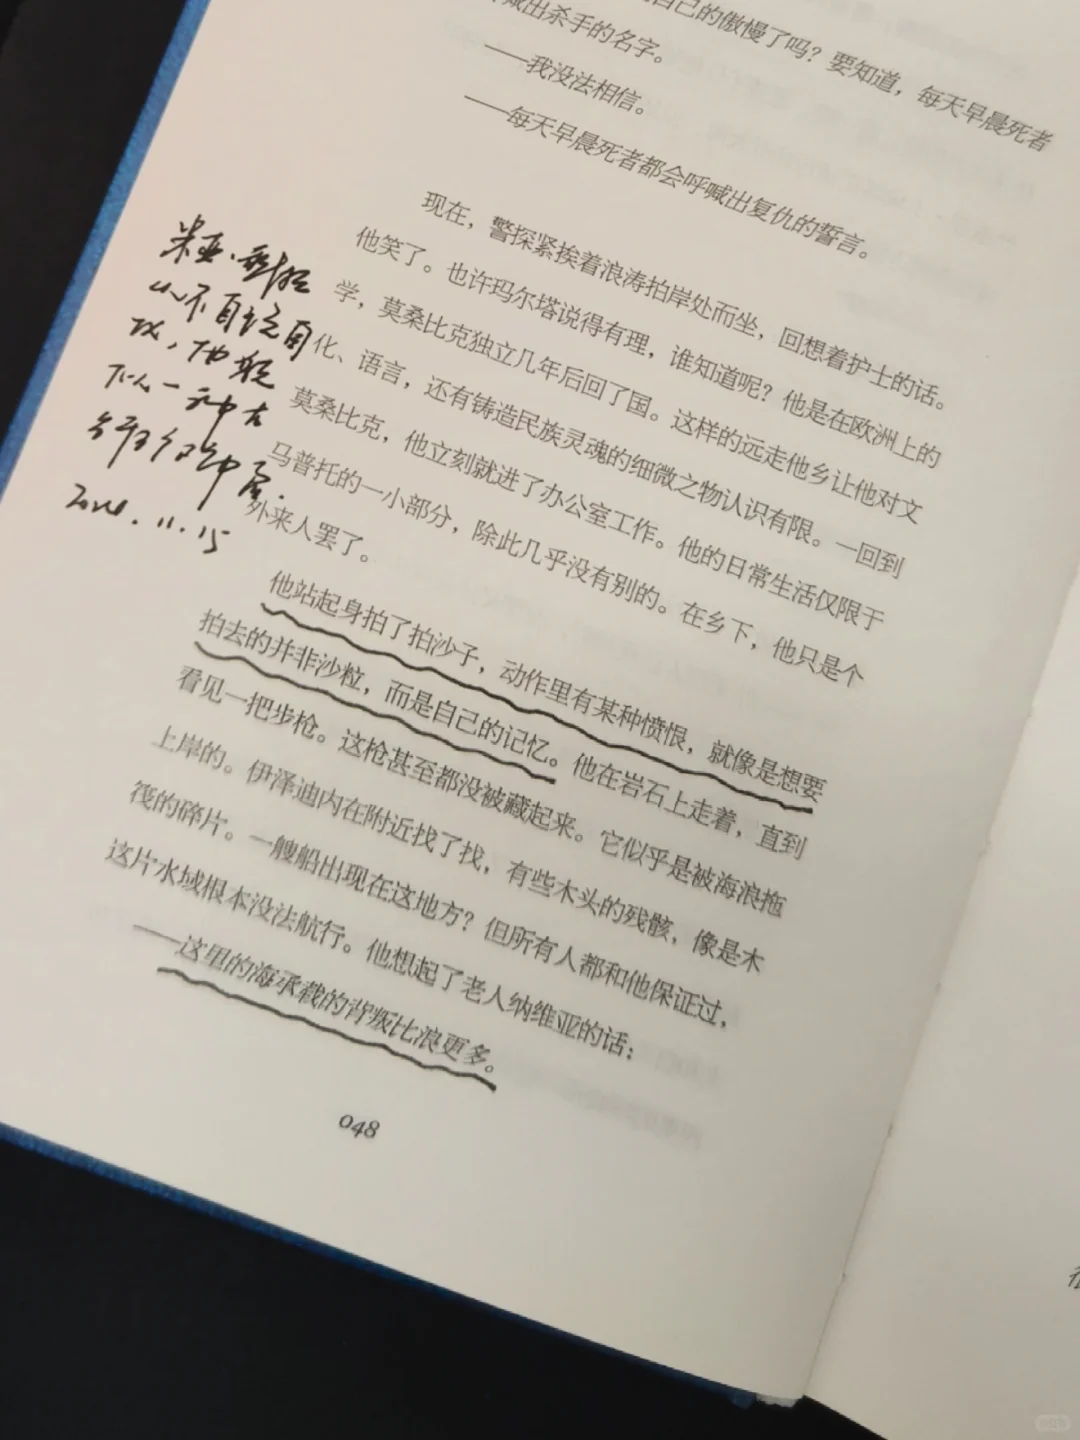 自己的傲慢了吗？要知道，每天早晨死者
喊出杀手的名字。
——我没法相信。
——每天早晨死者都会呼喊出复仇的誓言。
现在，警探紧挨着浪涛拍岸处而坐，回想着护士的话。
他笑了。也许玛尔塔说得有理，谁知道呢？他是在欧洲上的
学，莫桑比克独立几年后回了国。这样的远走他乡让他对文
化、语言，还有铸造民族灵魂的细微之物认识有限。一回到
莫桑比克，他立刻就进了办公室工作。他的日常生活仅限于
马普托的一小部分，除此几乎没有别的。在乡下，他只是个
外来人罢了。
他站起身拍了拍沙子，动作里有某种愤恨，就像是想要
拍去的并非沙粒，而是自己的记忆。他在岩石上走着，直到
看见一把步枪。这枪甚至都没被藏起来。它似乎是被海浪拖
上岸的。伊泽迪内在附近找了找，有些木头的残骸，像是木
筏的碎片。一艘船出现在这地方？但所有人都和他保证过，
这片水域根本没法航行。他想起了老人纳维亚的话：
——这里的海承载的背叛比浪更多。
048
米亚·
11.15